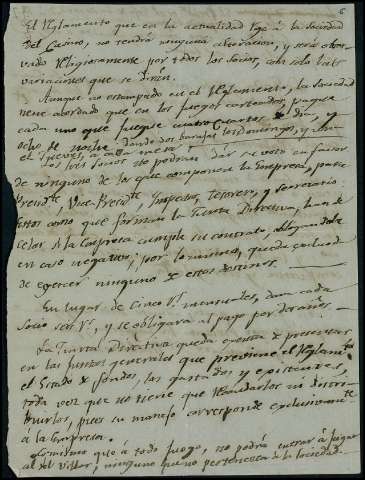 6
El Reglamento que en la actualidad rige à la Sociedad
del Casino, no tendrá ninguna alteracion, y será obser-
vado religiosamente por todos los Socios, con solo las
variaciones que se diran.
Aunque no estampado en el Reglamento, la Sociedad
tiene acordado que en los juegos carteados, pague
cada uno que juegue cuatro cuartos de dia, y
ocho de noche, dando dos barajas los domingos, y una
el Jueves, à cada mesa.
Los tres Socios no podran dar su voto en favor
de ninguno de los que componen la Empresa, para
Presidte, Vice-Presidte, Tesorero, y Secretario.
Estos como que forman la Junta Directiva, han de
celar si la Empresa cumple su contrato, obligandole
en caso negativo; por lo mismo, queda excluido
de egercer ninguno de estos destinos.
En lugar de cinco rs mensuales, dará cada
Socio seis rs, y se obligará al pago por
La Junta Directiva queda exenta de presentar
en las Juntas generales que previene el Reglamto
el Estado de fondos, los gastados y existentes,
toda vez que no tiene que recaudarlos ni distri-
buirlos, pues su manejo corresponde exclusivamte
à la Empresa.
Lo mismo que à todo juego, no podrá entrar à jugar
al del Villar, ninguno que no pertenezca à la Sociedad